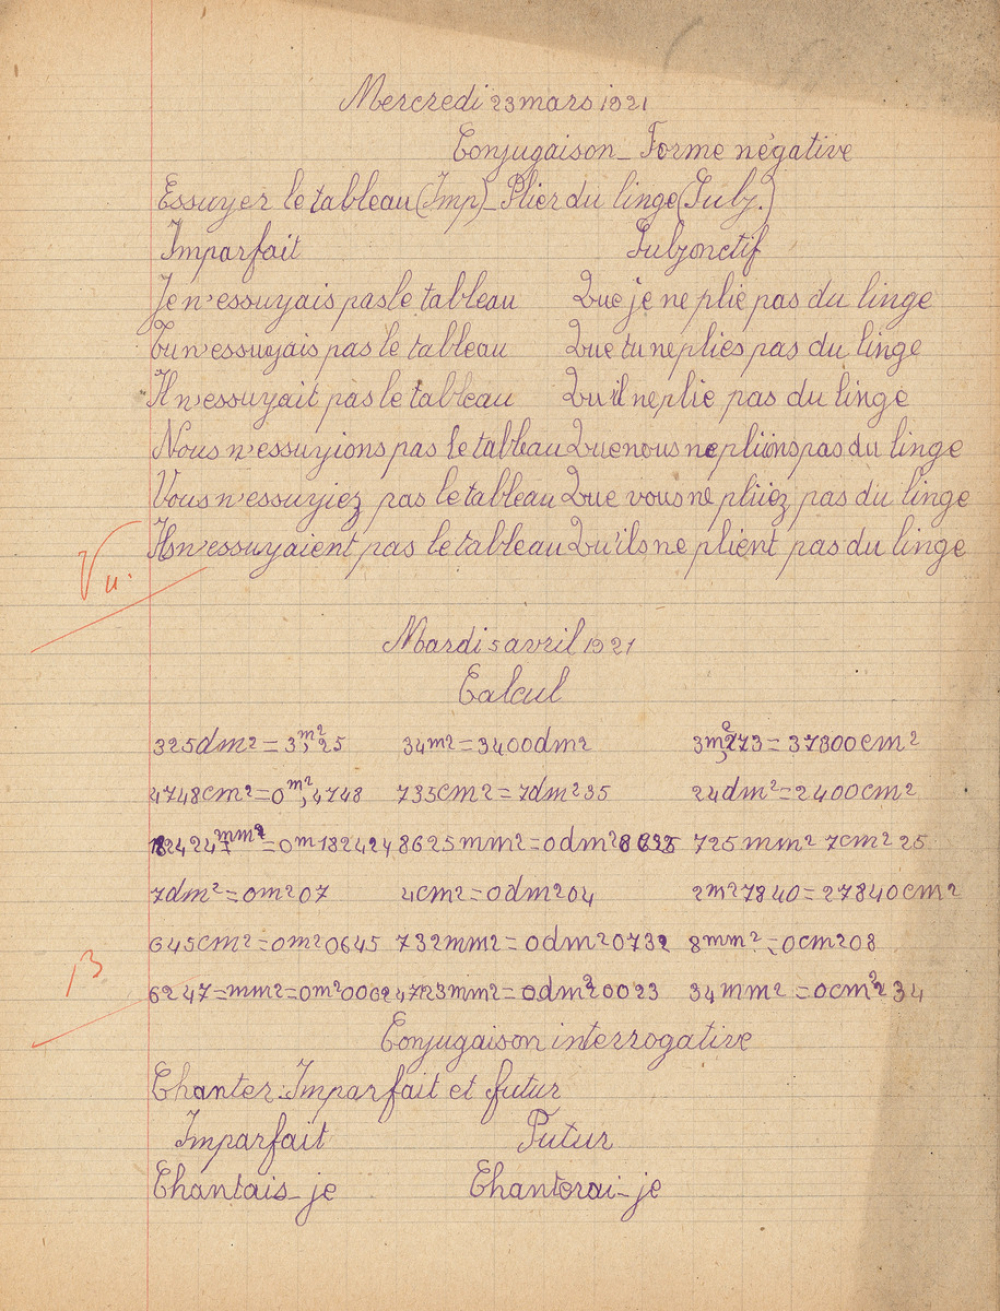 Mercredi 23 mars 1921
Conjugaison - Forme négative
Essuyer le tableau (Imp) - Plier du linge (Subj.)
Imparfait Subjonctif
Je n'essuyais pas le tableau Que je ne plie pas du linge
Tu n'essuyais pas le tableau Que tu ne plies pas du linge
Il n'essuyait pas le tableau Qu'il ne plie pas du linge
Nous n'essuyions pas le tableau Que nous ne pliions pas du linge
Vous n'essuyiez pas le tableau Que vous ne pliiez pas du linge
Ils n'essuyaient pas le tableau Qu'ils ne plient pas du linge
Vu.
Mardi 5 avril 1921
Calcul
325dm2 = 3m2,25 34m2 = 3400dm2 3m2,73 = 37300cm2
4748cm2 = 0m2,4748 735cm2 = 7dm235 24dm2 = 2400cm2
182424mm2 = 0m182424 8625mm2 = 0dm28625 725mm2 7cm225
7dm2 = 0m207 4cm2 = 0dm204 2m27840 = 27840cm2
645cm2 = 0m20645 732mm2 = 0dm20732 8mm2 = 0cm208
6247=mm2=0m200624723mm2 = 0dm20023 34mm2 = 0cm234
B
Conjugaison interrogative
Chanter: Imparfait et futur
Imparfait Futur
Chantais-je Chanterai-je